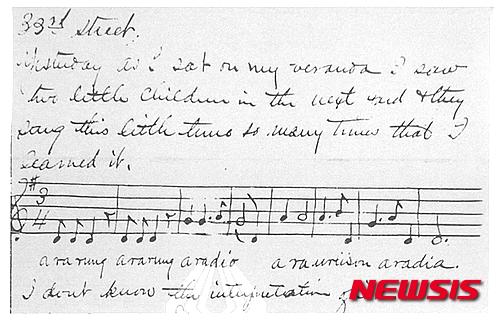 33rd street.
Yesterday as I sat on my veranda I saw
two little children in the next yard & they
sang this little tune so many times that I
learned it.
3
4
a ra rung a ra rung a ra dio a ra a ra dia.
I dont know the interpretation of
NEWSIS